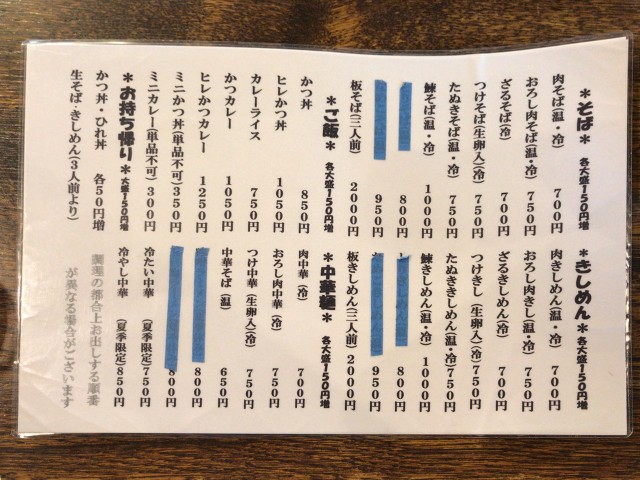 ＊そば＊ 各大盛150円増
肉そば(温・冷) 700円
おろし肉そば(温・冷) 750円
ざるそば(冷) 700円
つけそば(生卵入)(冷) 750円
たぬきそば(温・冷) 750円
鰊そば(温・冷) 1000円
800円
950円
板そば(三人前) 2000円
＊ご飯＊ 各大盛150円増
かつ丼 850円
ヒレかつ丼 1050円
カレーライス 750円
かつカレー 1050円
ヒレかつカレー 1250円
ミニかつ丼(単品不可)350円
ミニカレー(単品不可)300円
＊お持ち帰り＊ 大盛150円増
かつ丼・ひれ丼 各50円増
生そば・きしめん(3人前より)
＊きしめん＊ 各大盛150円増
肉きしめん(温・冷) 700円
おろし肉きし(温・冷) 750円
ざるきしめん(冷) 700円
つけきし(生卵入)(冷) 750円
たぬききしめん(温・冷)750円
鰊きしめん(温・冷) 1000円
800円
950円
板きしめん(三人前) 2000円
＊中華麺＊ 各大盛150円増
肉中華(冷) 700円
おろし肉中華(冷) 750円
つけ中華(生卵入)(冷) 750円
中華そば(温) 650円
800円
800円
冷たい中華 (夏季限定)750円
冷やし中華 (夏季限定)850円
調理の都合上お出しする順番
が異なる場合がございます